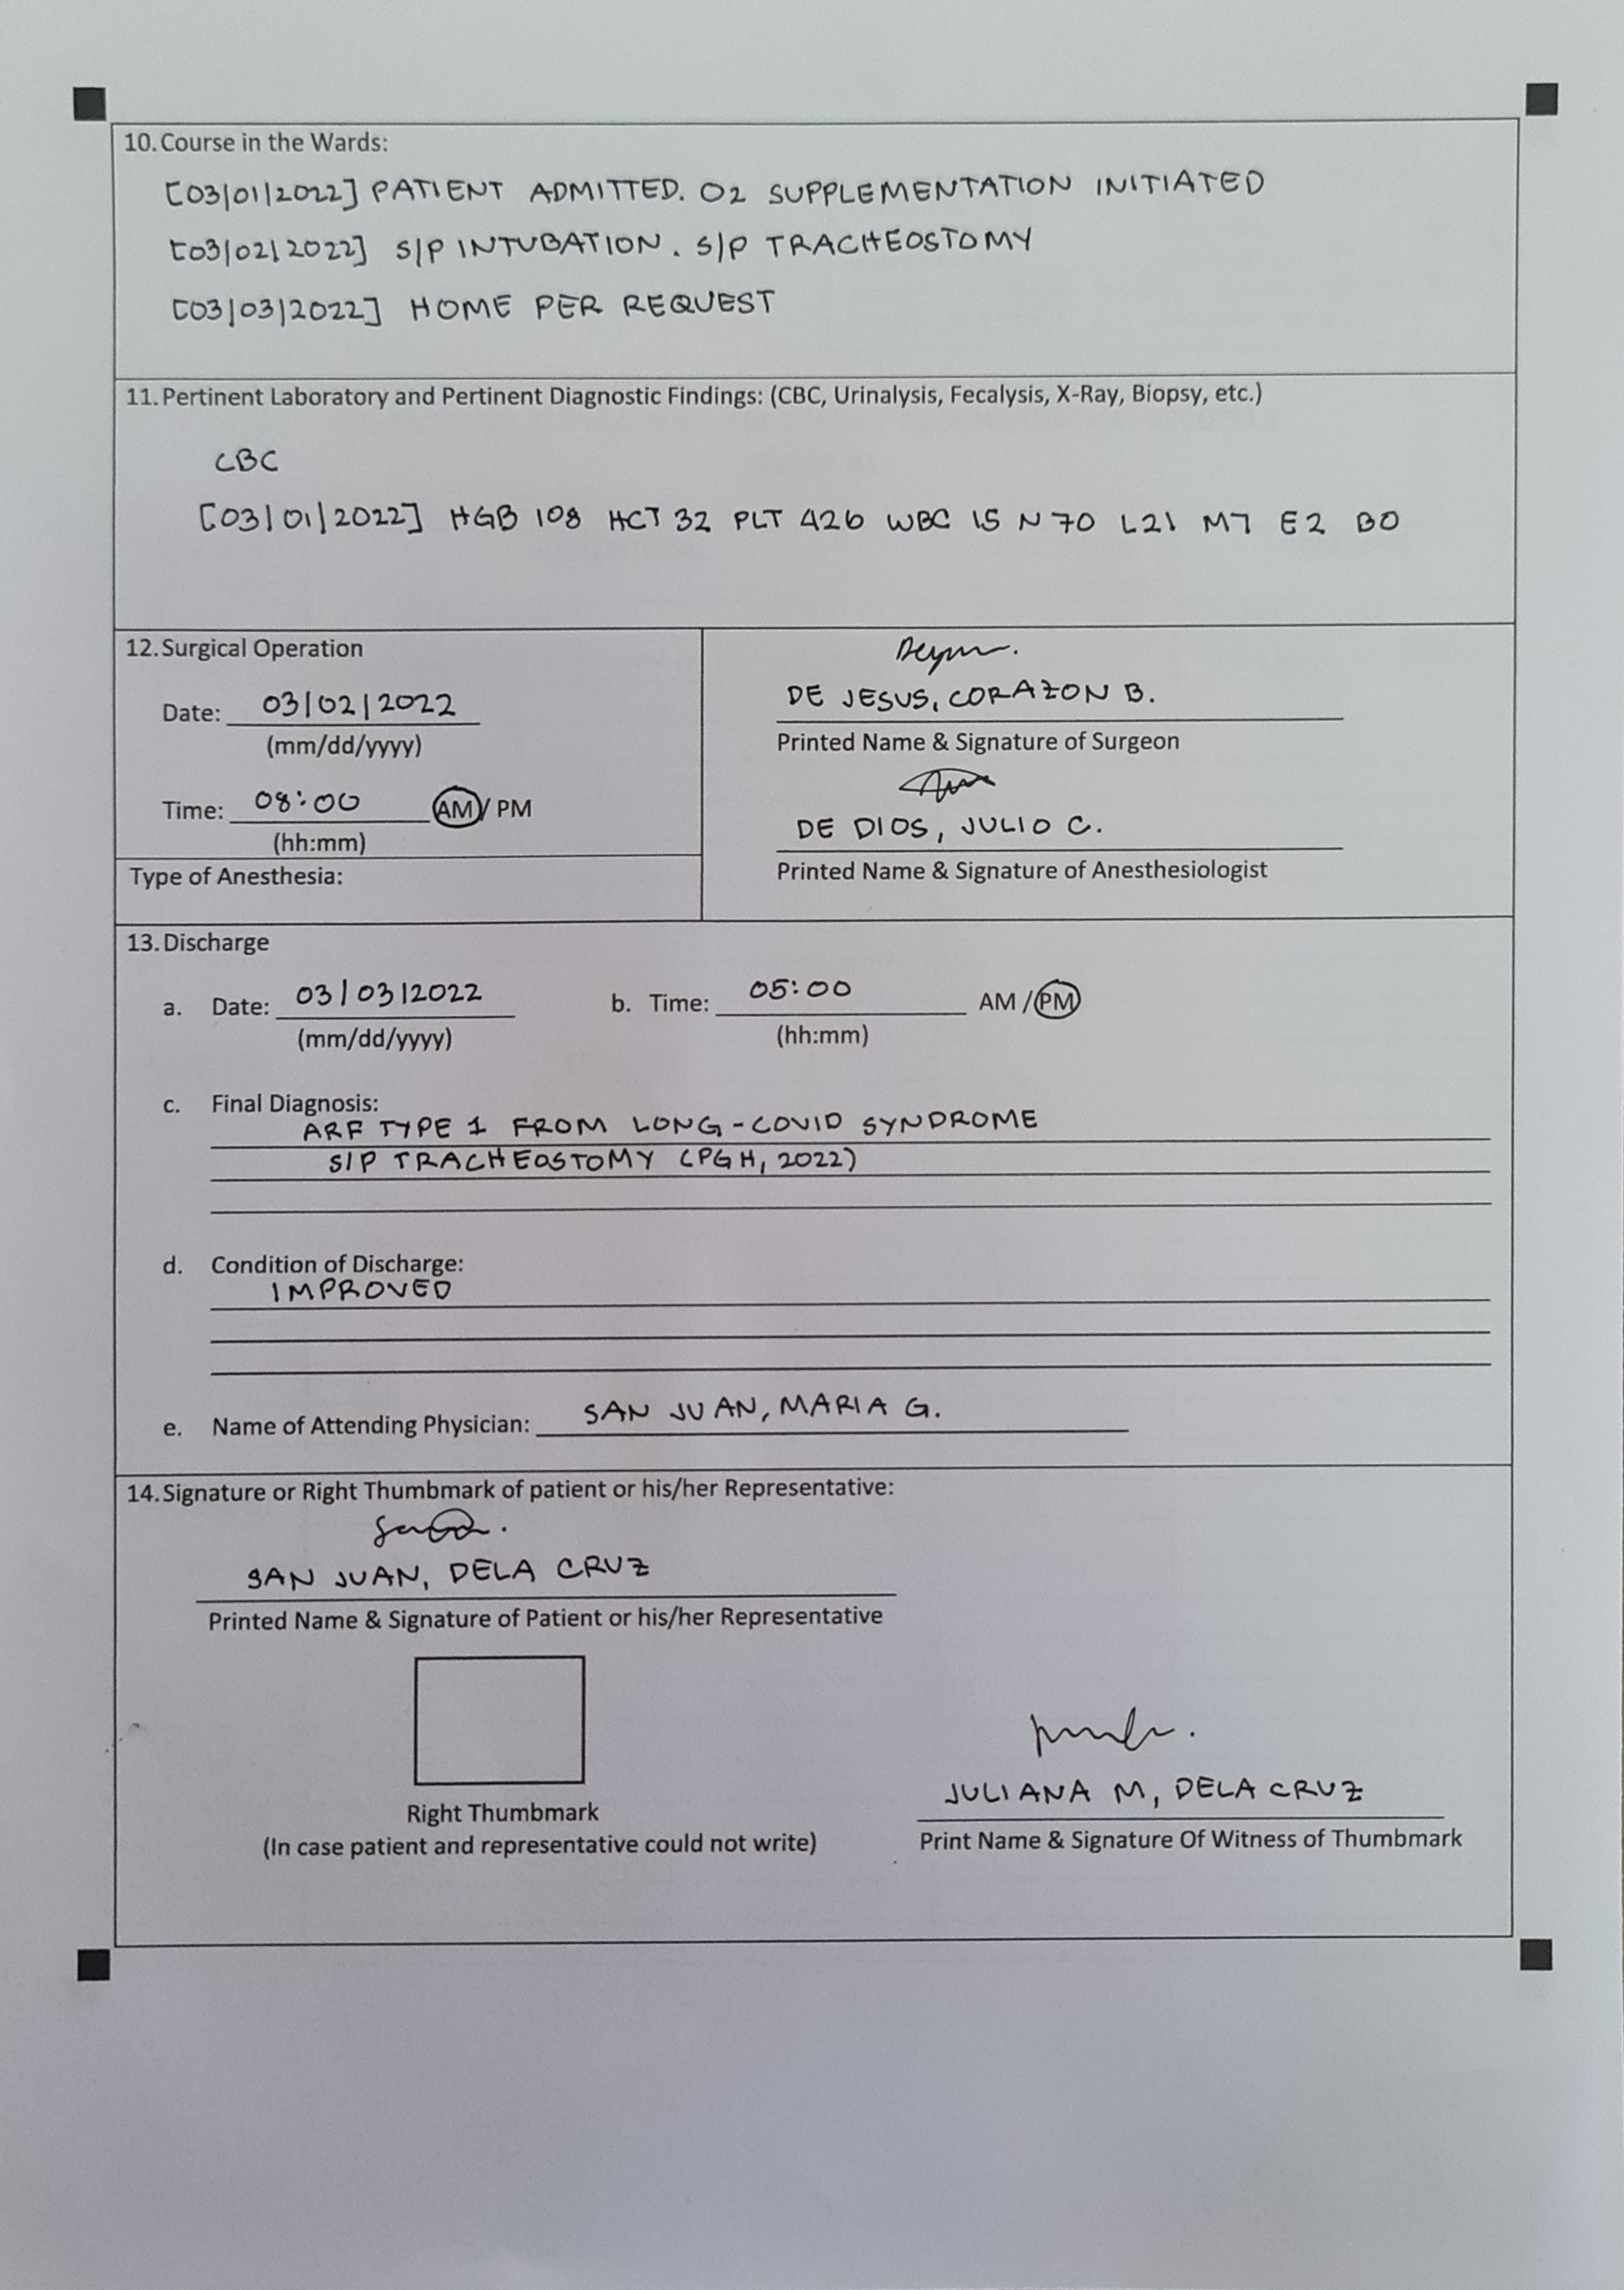 10. Course in the Wards:
[03/01/2022] PATIENT ADMITTED. O2 SUPPLEMENTATION INITIATED
[03/02/2022] S/P INTUBATION. S/P TRACHEOSTOMY
[03/03/2022] HOME PER REQUEST
11. Pertinent Laboratory and Pertinent Diagnostic Findings: (CBC, Urinalysis, Fecalysis, X-Ray, Biopsy, etc.)
CBC
[03/01/2022] HGB 108 HCT 32 PLT 426 WBC 15 N 70 L21 M7 E2 B0
12. Surgical Operation
Date: 03/02/2022
(mm/dd/yyyy)
Time: 08:00 AM / PM
(hh:mm)
Type of Anesthesia:
DE JESUS, CORAZON B.
Printed Name & Signature of Surgeon
DE DIOS, JULIO C.
Printed Name & Signature of Anesthesiologist
13. Discharge
a. Date: 03/03/2022 b. Time: 05:00 AM / PM
(mm/dd/yyyy) (hh:mm)
c. Final Diagnosis:
ARF TYPE 1 FROM LONG-COVID SYNDROME
S/P TRACHEOSTOMY (PGH, 2022)
d. Condition of Discharge:
IMPROVED
e. Name of Attending Physician: SAN JUAN, MARIA G.
14. Signature or Right Thumbmark of patient or his/her Representative:
SAN JUAN, DELA CRUZ
Printed Name & Signature of Patient or his/her Representative
JULIANA M, DELA CRUZ
Right Thumbmark
(In case patient and representative could not write)
Print Name & Signature Of Witness of Thumbmark